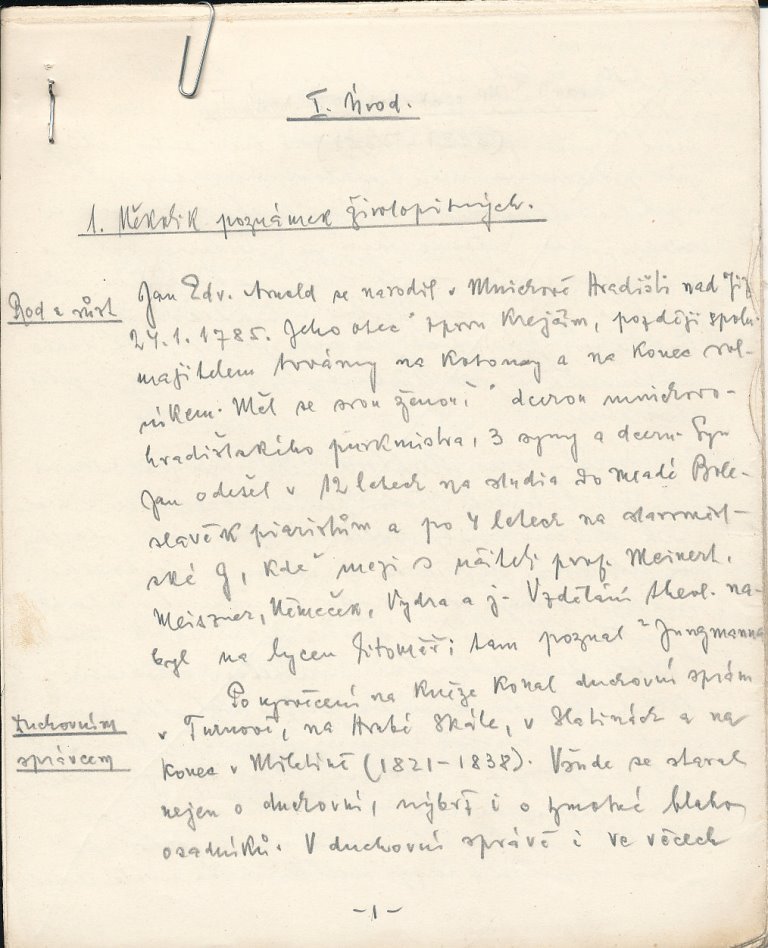 I. Úvod.
1. Několik poznámek životopisných.
Rod a růst
Jan Edv. Arnold se narodil v Mnichově Hradišti nad Jiz.
24.1.1785. Jeho otec ° zprvu krejčím, později spolu-
majitelem továrny na kotouny a na konec sol-
níkem. Měl se svou ženou, ° dcerou mnichovo-
hradišťského purkmistra, 3 syny a dceru. Syn
Jan odešel v 12 letech na studia do Mladé Bole-
slavě k piaristům a po 4 letech na staroměst-
ské g, kde ° mezi s učiteli prof. Meinert,
Meiszner, Němeček, Vydra a j. Vzdělání theol. na-
byl na lyceu Litoměř; tam poznal Jungmanna
Duchovním
správcem
Po vysvěcení na kněze konal duchovní správu
v Turnově, na Hrubé Skále, v Slatinách a na
konec v Miletíně (1821-1838). Všude se staral
nejen o duchovní, nýbrž i o hmotné blaho
osadníků. V duchovní správě i ve věcech
-1-